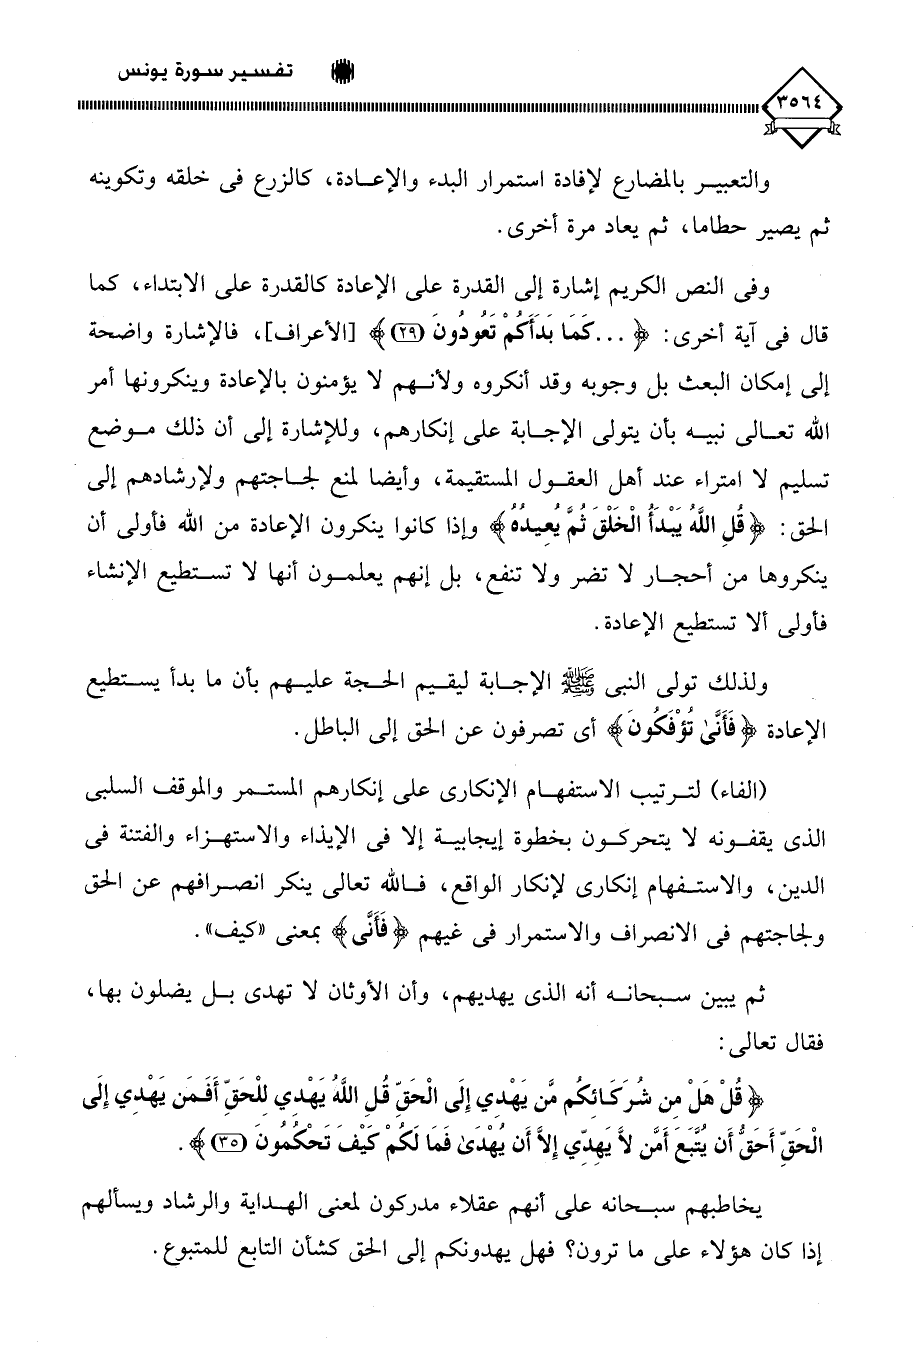 تفسير سورة يونس
٣٥٦٤
والتعبير بالمضارع لإفادة استمرار البدء والإعادة، كالزرع فى خلقه وتكوينه
ثم يصير حطاما، ثم يعاد مرة أخرى.
وفى النص الكريم إشارة إلى القدرة على الإعادة كالقدرة على الابتداء، كما
قال فى آية أخرى: ﴿ ...كَمَا بَدَأَكُمْ تَعُودُونَ (٢٩)﴾ [الأعراف]، فالإشارة واضحة
إلى إمكان البعث بل وجوبه وقد أنكروه ولأنهم لا يؤمنون بالإعادة وينكرونها أمر
الله تعالى نبيه بأن يتولى الإجابة على إنكارهم، وللإشارة إلى أن ذلك موضع
تسليم لا امتراء عند أهل العقول المستقيمة، وأيضا لمنع لجاجتهم ولإرشادهم إلى
الحق: ﴿قُلِ اللَّهُ يَبْدَأُ الْخَلْقَ ثُمَّ يُعِيدُهُ﴾ وإذا كانوا ينكرون الإعادة من الله فأولى أن
ينكروها من أحجار لا تضر ولا تنفع، بل إنهم يعلمون أنها لا تستطيع الإنشاء
فأولى ألا تستطيع الإعادة.
ولذلك تولى النبى ﷺ الإجابة ليقيم الحجة عليهم بأن ما بدأ يستطيع
الإعادة ﴿فَأَنَّىٰ تُؤْفَكُونَ﴾ أى تصرفون عن الحق إلى الباطل.
(الفاء) لترتيب الاستفهام الإنكارى على إنكارهم المستمر والموقف السلبى
الذى يقفونه لا يتحركون بخطوة إيجابية إلا فى الإيذاء والاستهزاء والفتنة فى
الدين، والاستفهام إنكارى لإنكار الواقع، فالله تعالى ينكر انصرافهم عن الحق
ولجاجتهم فى الانصراف والاستمرار فى غيهم ﴿فَأَنَّى﴾ بمعنى «كيف».
ثم يبين سبحانه أنه الذى يهديهم، وأن الأوثان لا تهدى بل يضلون بها،
فقال تعالى:
﴿قُلْ هَلْ مِن شُرَكَائِكُم مَّن يَهْدِي إِلَى الْحَقِّ قُلِ اللَّهُ يَهْدِي لِلْحَقِّ أَفَمَن يَهْدِي إِلَى
الْحَقِّ أَحَقُّ أَن يُتَّبَعَ أَمَّن لاَّ يَهِدِّي إِلاَّ أَن يُهْدَىٰ فَمَا لَكُمْ كَيْفَ تَحْكُمُونَ (٣٥)﴾.
يخاطبهم سبحانه على أنهم عقلاء مدركون لمعنى الهداية والرشاد ويسألهم
إذا كان هؤلاء على ما ترون؟ فهل يهدونكم إلى الحق كشأن التابع للمتبوع.